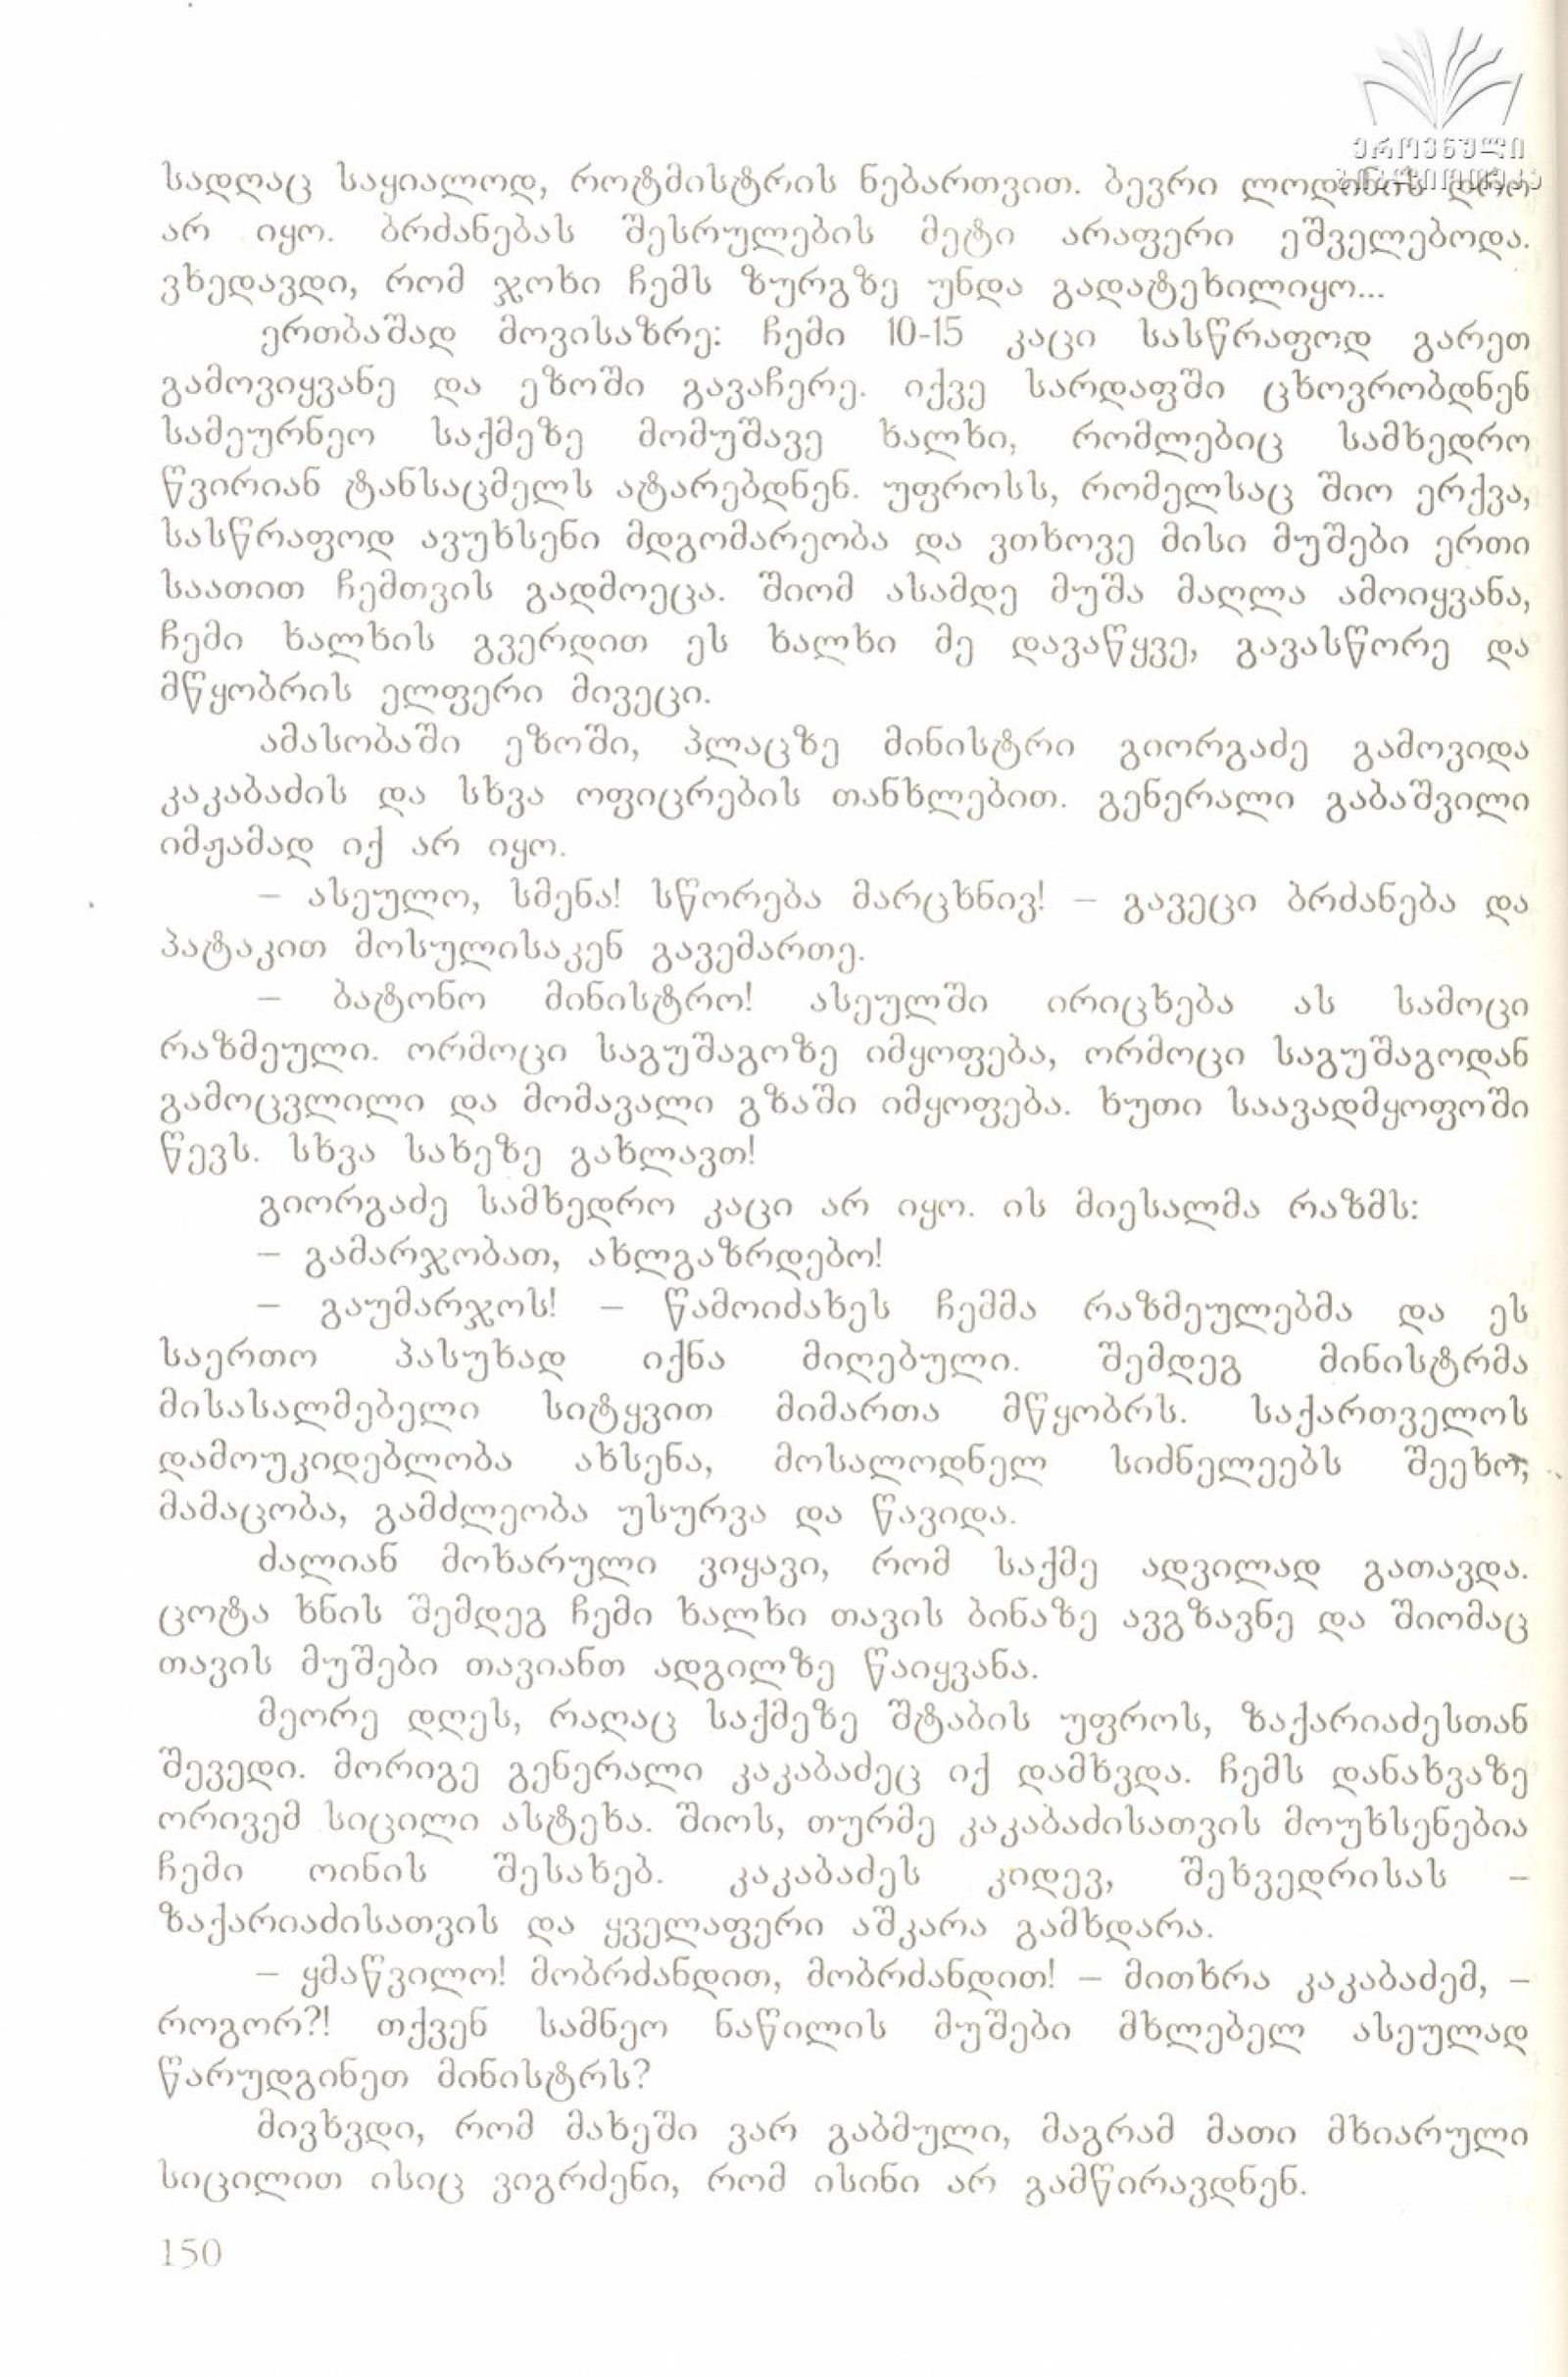 ეროვნული
ბიბლიოთეკა
სადღაც საყიალოდ, როტმისტრის ნებართვით. ბევრი ლოდინის დრო
არ იყო. ბრძანებას შესრულების მეტი არაფერი ეშველებოდა.
ვხედავდი, რომ ჯოხი ჩემს ზურგზე უნდა გადატეხილიყო...
ერთბაშად მოვისაზრე: ჩემი 10-15 კაცი სასწრაფოდ გარეთ
გამოვიყვანე და ეზოში გავაჩერე. იქვე სარდაფში ცხოვრობდნენ
სამეურნეო საქმეზე მომუშავე ხალხი, რომლებიც სამხედრო
წვირიან ტანსაცმელს ატარებდნენ. უფროსს, რომელსაც შიო ერქვა,
სასწრაფოდ ავუხსენი მდგომარეობა და ვთხოვე მისი მუშები ერთი
საათით ჩემთვის გადმოეცა. შიომ ასამდე მუშა მაღლა ამოიყვანა,
ჩემი ხალხის გვერდით ეს ხალხი მე დავაწყვე, გავასწორე და
მწყობრის ელფერი მივეცი.
ამასობაში ეზოში, პლაცზე მინისტრი გიორგაძე გამოვიდა
კაკაბაძის და სხვა ოფიცრების თანხლებით. გენერალი გაბაშვილი
იმჟამად იქ არ იყო.
– ასეულო, სმენა! სწორება მარცხნივ! – გავეცი ბრძანება და
პატაკით მოსულისაკენ გავემართე.
– ბატონო მინისტრო! ასეულში ირიცხება ას სამოცი
რაზმეული. ორმოცი საგუშაგოზე იმყოფება, ორმოცი საგუშაგოდან
გამოცვლილი და მომავალი გზაში იმყოფება. ხუთი საავადმყოფოში
წევს. სხვა სახეზე გახლავთ!
გიორგაძე სამხედრო კაცი არ იყო. ის მიესალმა რაზმს:
– გამარჯობათ, ახლგაზრდებო!
– გაუმარჯოს! – წამოიძახეს ჩემმა რაზმეულებმა და ეს
საერთო პასუხად იქნა მიღებული. შემდეგ მინისტრმა
მისასალმებელი სიტყვით მიმართა მწყობრს. საქართველოს
დამოუკიდებლობა ახსენა, მოსალოდნელ სიძნელეებს შეეხო,
მამაცობა, გამძლეობა უსურვა და წავიდა.
ძალიან მოხარული ვიყავი, რომ საქმე ადვილად გათავდა.
ცოტა ხნის შემდეგ ჩემი ხალხი თავის ბინაზე ავგზავნე და შიომაც
თავის მუშები თავიანთ ადგილზე წაიყვანა.
მეორე დღეს, რაღაც საქმეზე შტაბის უფროს, ზაქარიაძესთან
შევედი. მორიგე გენერალი კაკაბაძეც იქ დამხვდა. ჩემს დანახვაზე
ორივემ სიცილი ასტეხა. შიოს, თურმე კაკაბაძისათვის მოუხსენებია
ჩემი ოინის შესახებ. კაკაბაძეს კიდევ, შეხვედრისას –
ზაქარიაძისათვის და ყველაფერი აშკარა გამხდარა.
– ყმაწვილო! მობრძანდით, მობრძანდით! – მითხრა კაკაბაძემ, –
როგორ?! თქვენ სამნეო ნაწილის მუშები მხლებელ ასეულად
წარუდგინეთ მინისტრს?
მივხვდი, რომ მახეში ვარ გაბმული, მაგრამ მათი მხიარული
სიცილით ისიც ვიგრძენი, რომ ისინი არ გამწირავდნენ.
150